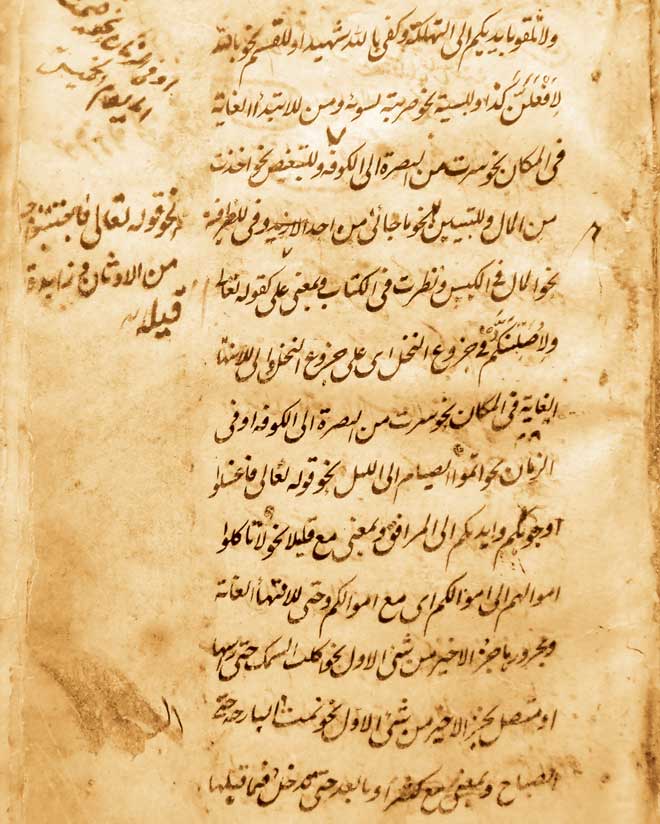 ولا تلقوا بايديكم الى التهلكة وكفى بالله شهيدا وللقسم نحو بالله
لافعلن كذا وللسببية نحو ضربته لسوئه ومن للابتداء الغاية
فى المكان نحو سرت من البصرة الى الكوفه وللتبعيض نحو اخذت
من المال وللتبيين نحو ما جائنى من احد وفى للظرفية
نحو المال فى الكيس ونظرت فى الكتاب وبمعنى على كقوله تعالى
ولاصلبنكم فى جزوع النخل اى على جزوع النخل والى للانتها
الغاية فى المكان نحو سرت من البصرة الى الكوفه او فى
الزمان نحو اتموا الصيام الى الليل نحو قوله تعالى فاغسلوا
وجوهكم وايديكم الى المرافق وبمعنى مع قليلا نحو لا تاكلوا
اموالهم الى اموالكم اى مع اموالكم وحتى للانتهأ الغاية
ومجرورها جزء الاخير من شئ الاول نحو اكلت السمك حتى راسها
او متصل بجزء الاخير من شئ الاول نحو نمت البارحة حتى
الصباح وبمعنى مع كثيرا وما بعد حتى يدخل فيما قبلها
نحو قوله تعالى فاجتنبوا
من الاوثان وزايدة
قيله